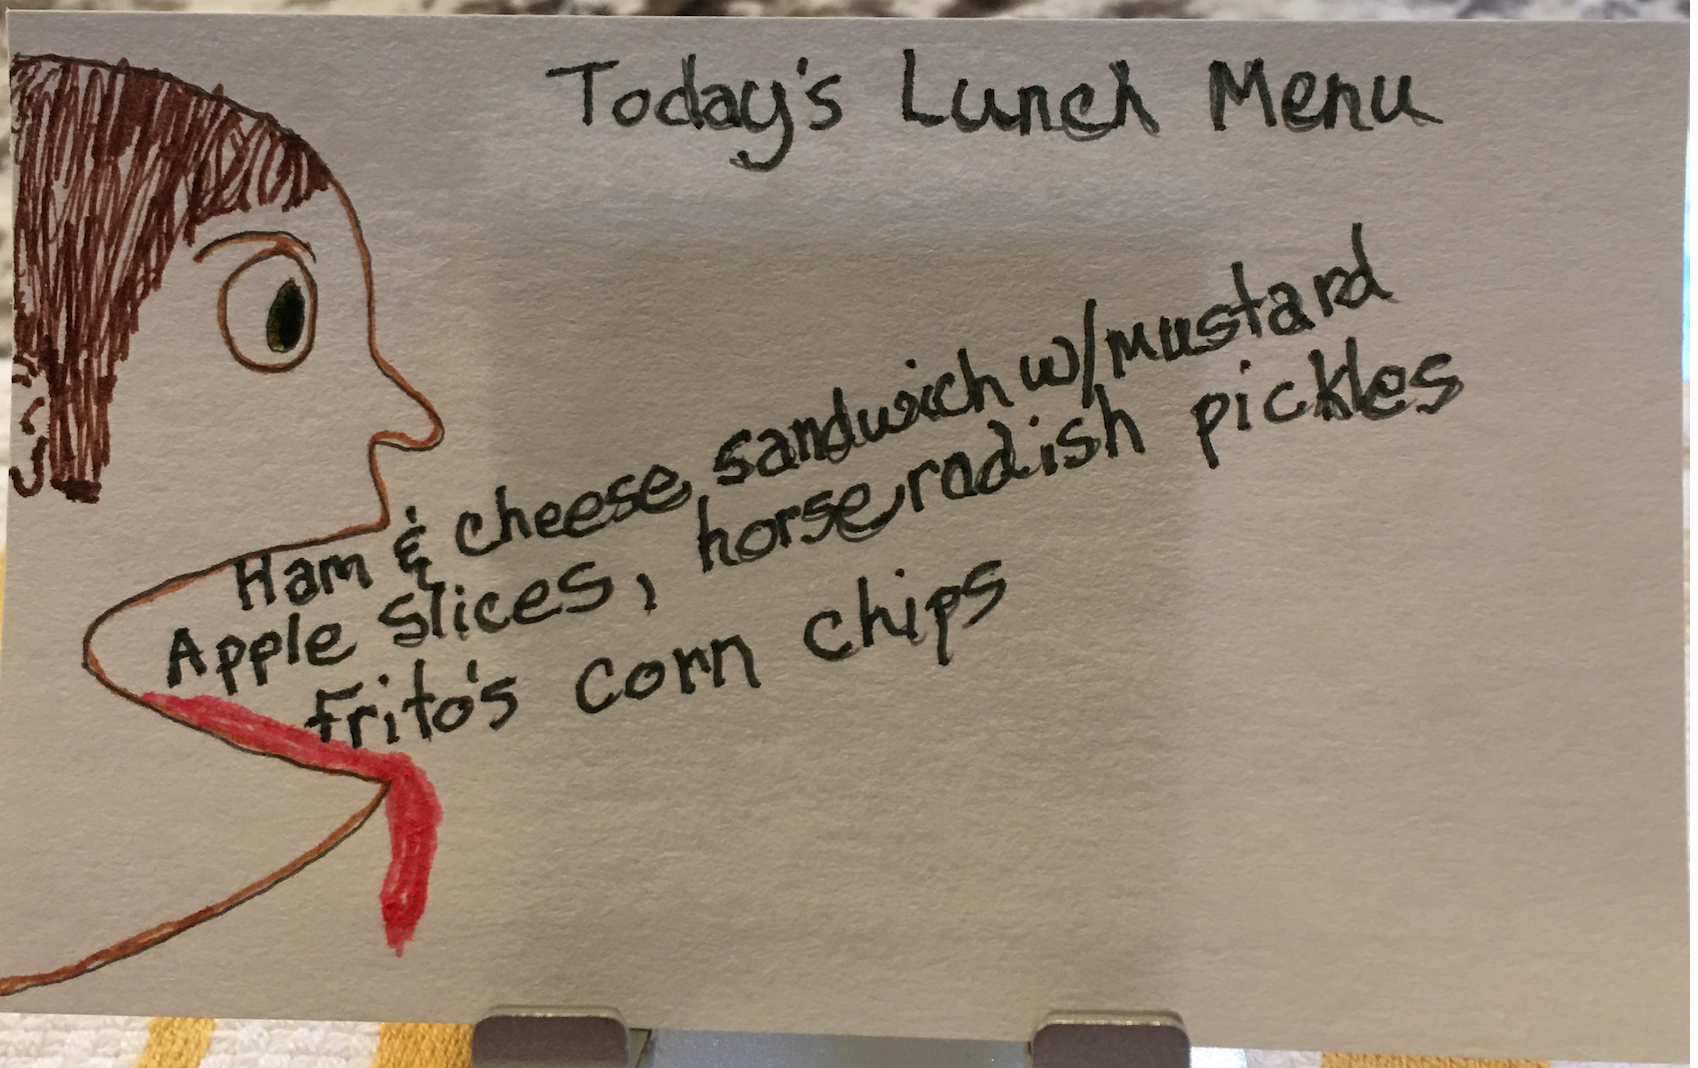 Today's Lunch Menu
Ham & cheese sandwich w/mustard
Apple slices, horseradish pickles
Frito's corn chips